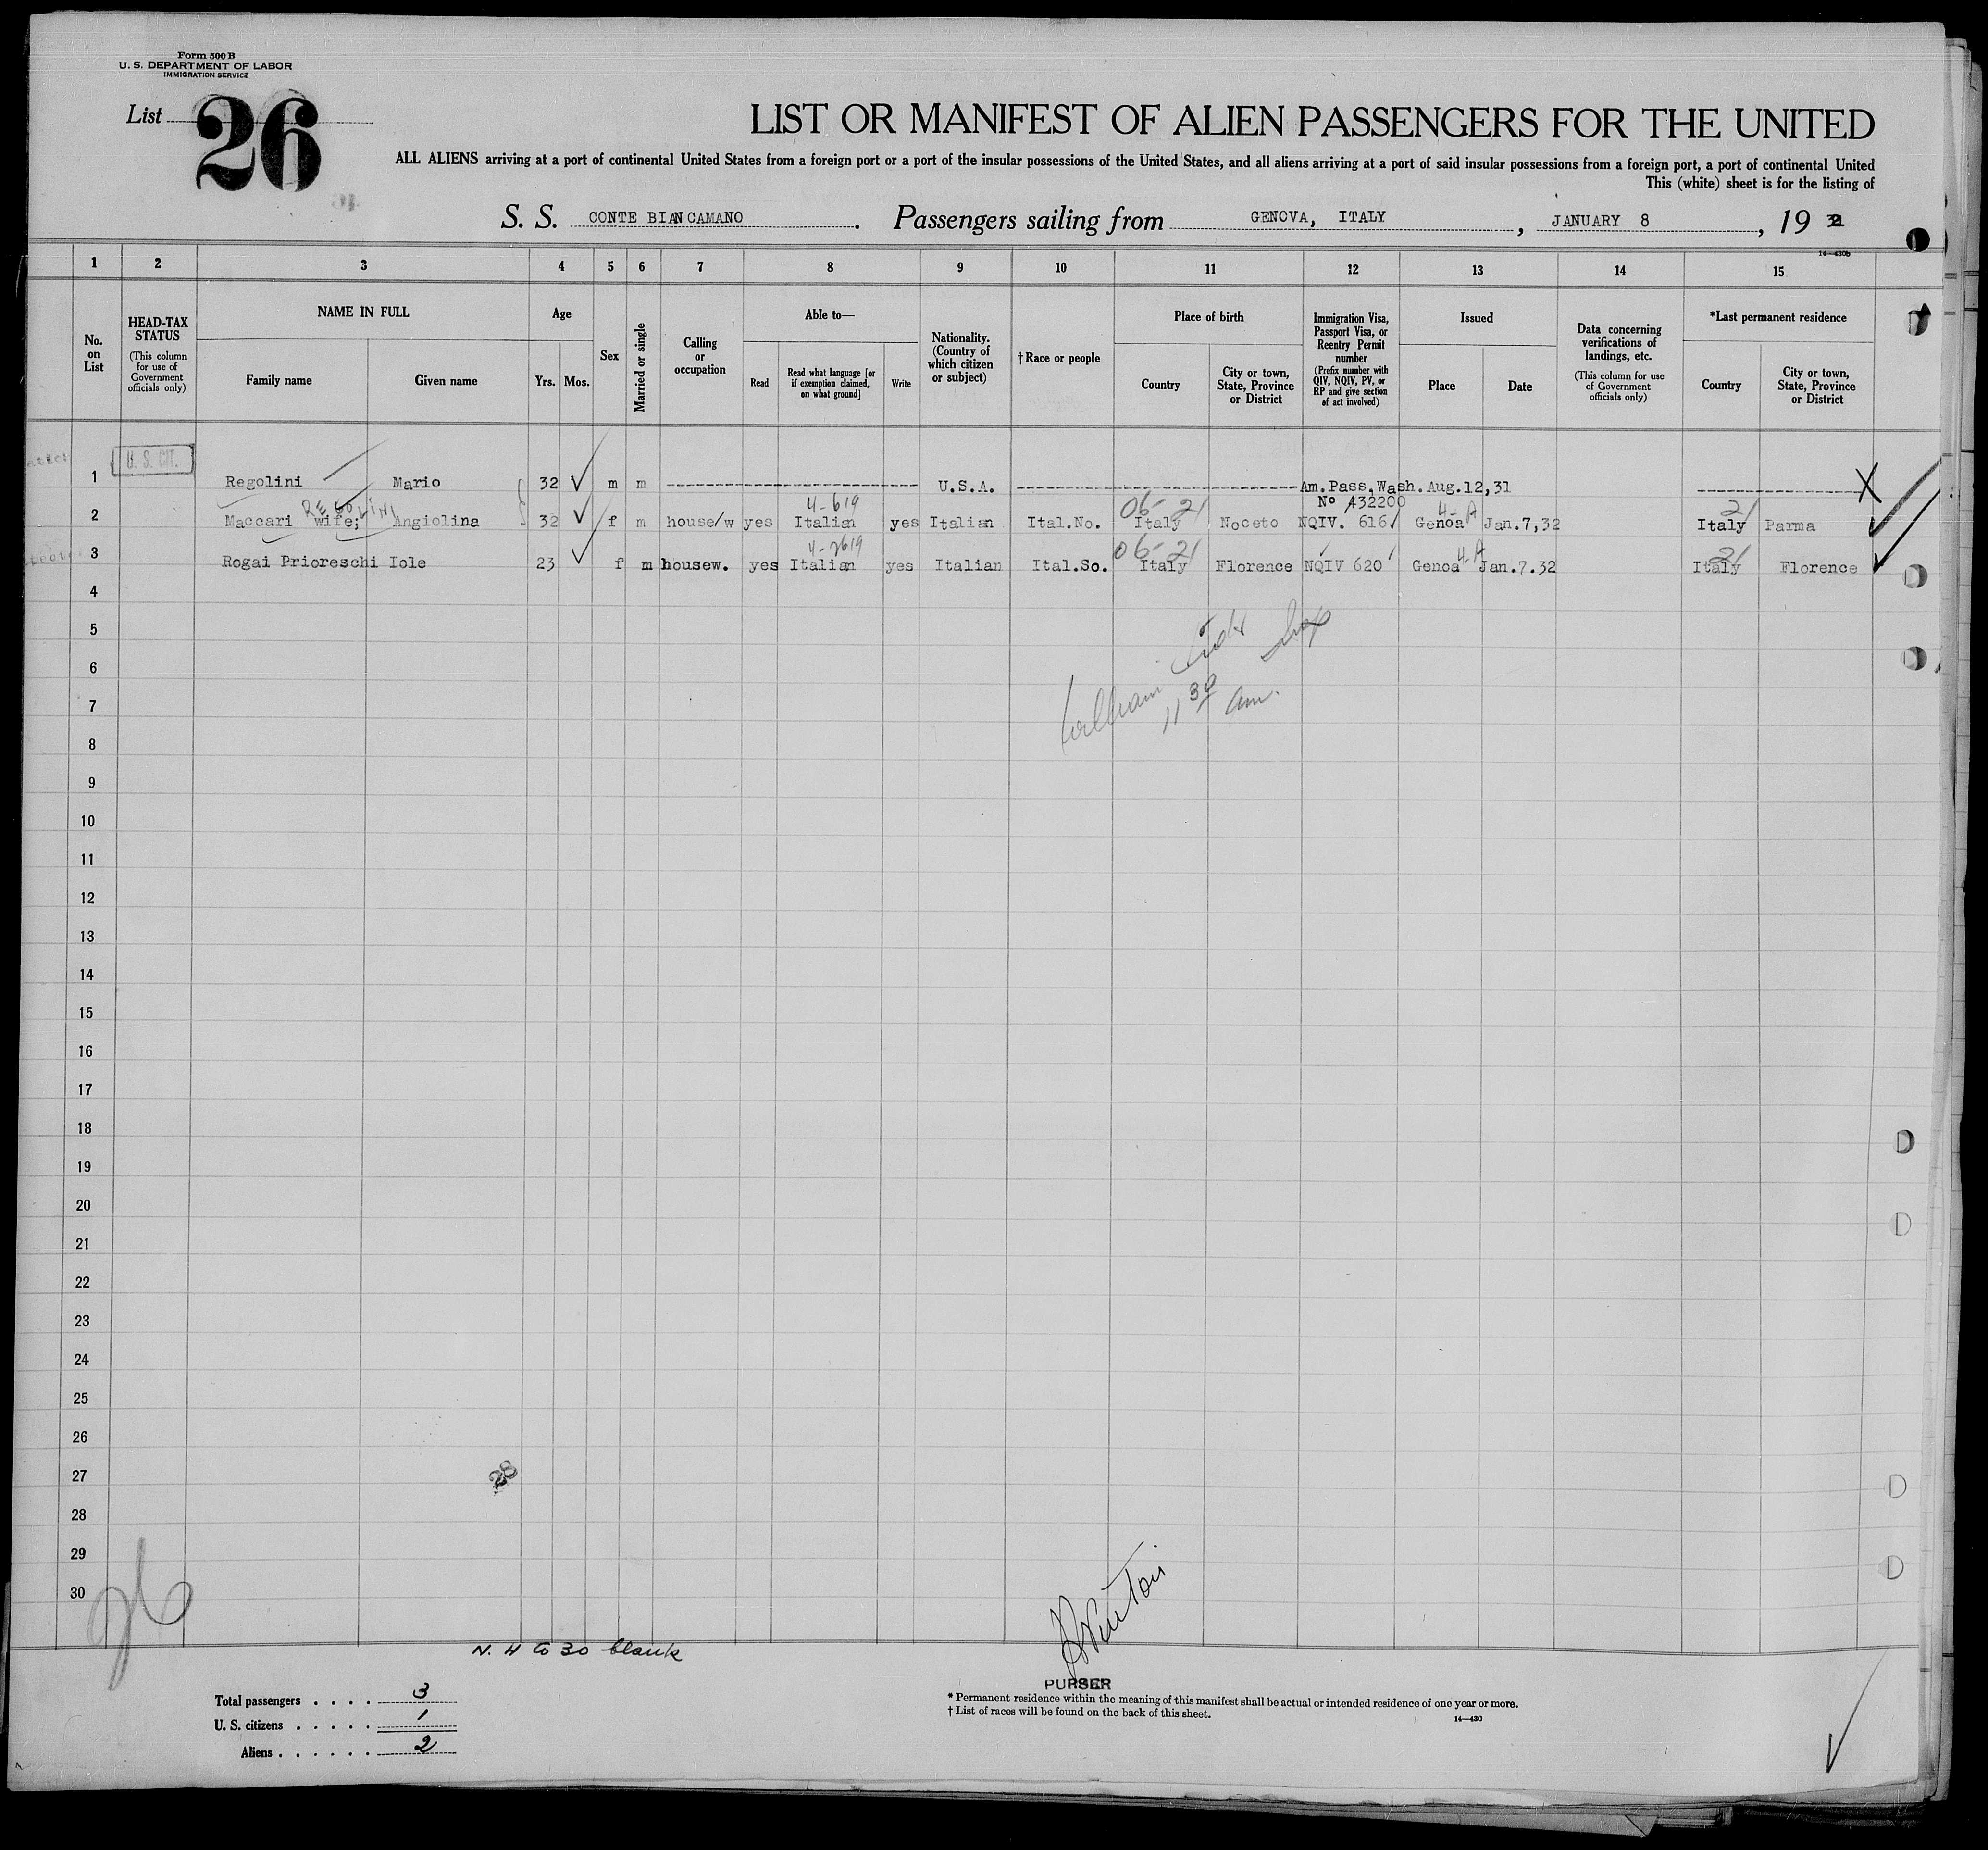 Form 500 B
U. S. DEPARTMENT OF LABOR
IMMIGRATION SERVICE
List 26
LIST OR MANIFEST OF ALIEN PASSENGERS FOR THE UNITED
ALL ALIENS arriving at a port of continental United States from a foreign port or a port of the insular possessions of the United States, and all aliens arriving at a port of said insular possessions from a foreign port, a port of continental United
This (white) sheet is for the listing of
S. S. CONTE BIANCAMANO. Passengers sailing from GENOVA, ITALY, JANUARY 8, 19 32
14—430b
1 2 3 4 5 6 7 8 9 10 11 12 13 14 15
No. on List
HEAD-TAX STATUS
(This column for use of Government officials only)
NAME IN FULL
Family name Given name
Age
Yrs. Mos.
Sex
Married or single
Calling or occupation
Able to—
Read
Read what language [or if exemption claimed, on what ground]
Write
Nationality. (Country of which citizen or subject)
†Race or people
Place of birth
Country
City or town, State, Province or District
Immigration Visa, Passport Visa, or Reentry Permit number
(Prefix number with QIV, NQIV, PV, or RP and give section of act involved)
Issued
Place Date
Data concerning verifications of landings, etc.
(This column for use of Government officials only)
*Last permanent residence
Country
City or town, State, Province or District
U. S. CIT.
1 Regolini Mario 32 m m U.S.A. Am.Pass.Wash.Aug.12,31
REGOLINI 4-619 06-21 No 432200 4-A 21
2 Maccari wife; Angiolina 32 f m house/w yes Italian yes Italian Ital.No. Italy Noceto NQIV. 616 Genoa Jan.7,32 Italy Parma
4-2619 06-21 4-A 21
3 Rogai Prioreschi Iole 23 f m housew. yes Italian yes Italian Ital.So. Italy Florence NQIV 620 Genoa Jan.7.32 Italy Florence
4
5
6
7
11 30 am.
8
9
10
11
12
13
14
15
16
17
18
19
20
21
22
23
24
25
26
27
28
28
29
30
26
N. 4 to 30 blank
PURSER
Total passengers . . . . 3
U. S. citizens . . . . . 1
Aliens . . . . . . 2
* Permanent residence within the meaning of this manifest shall be actual or intended residence of one year or more.
† List of races will be found on the back of this sheet.
14—430